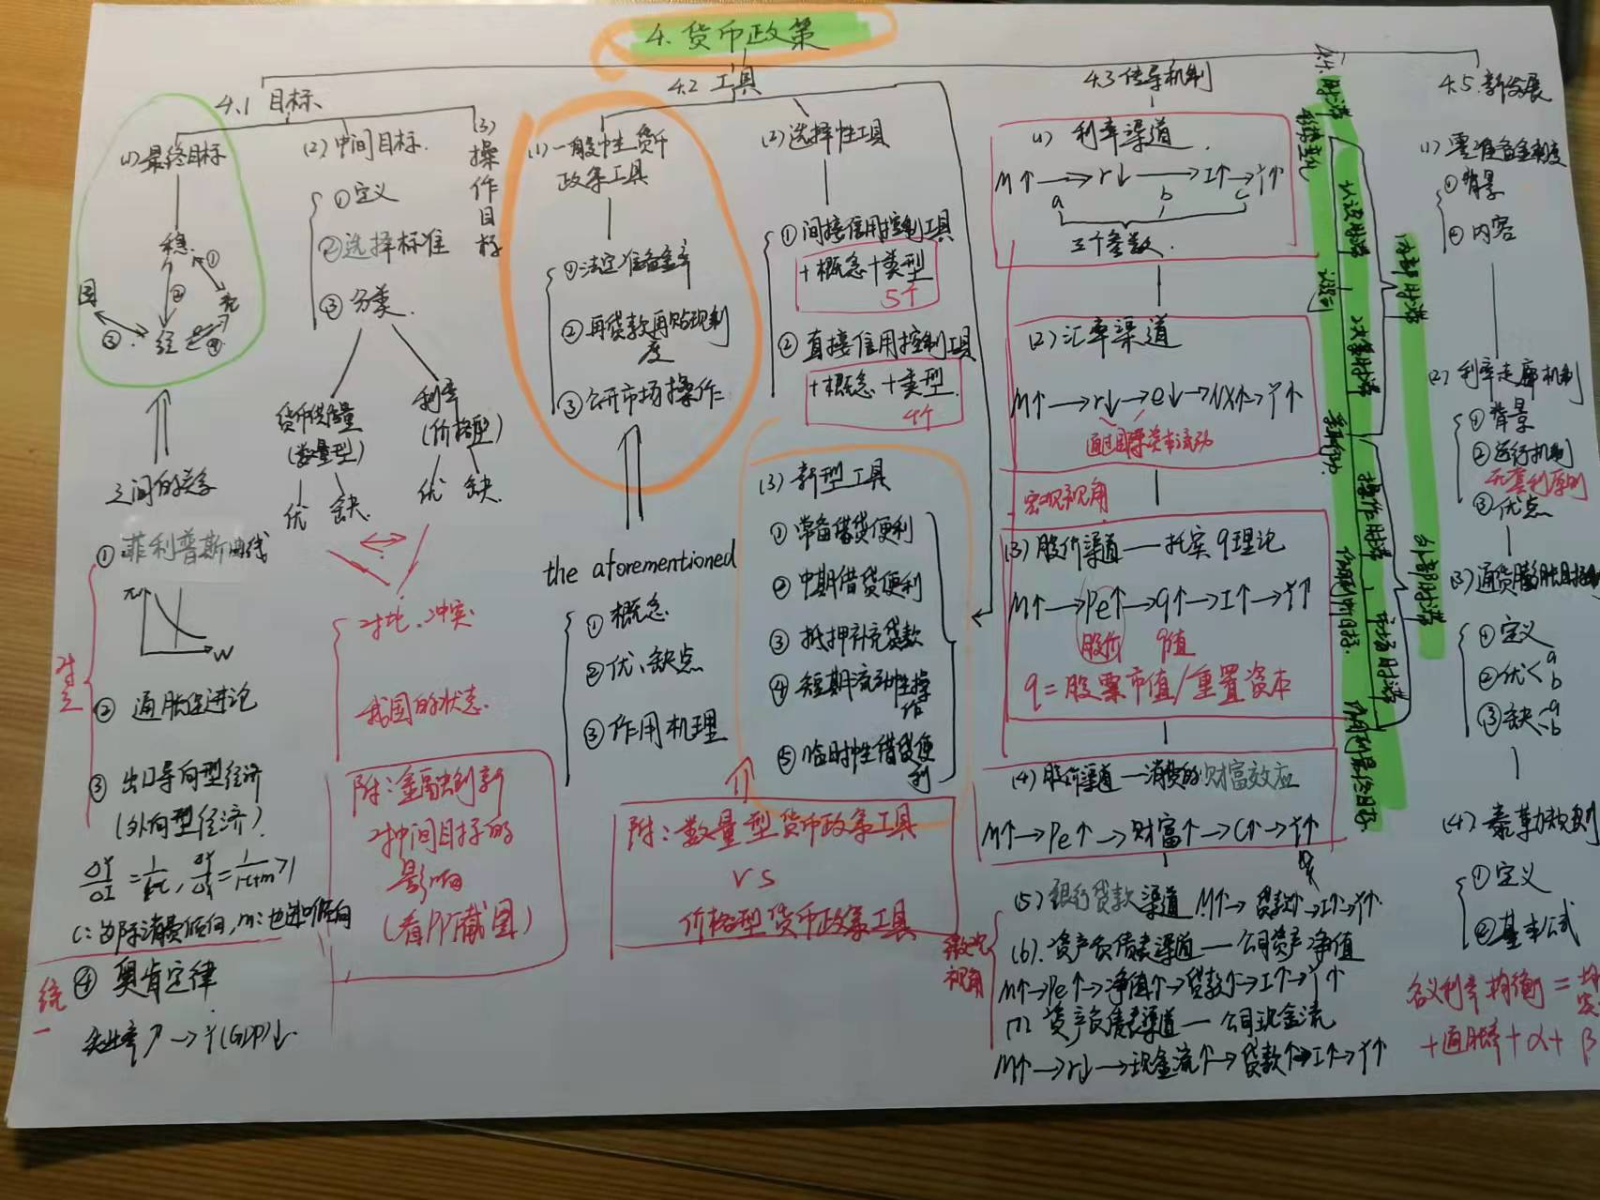 4.货币政策
4.1 目标
(1)最终目标
稳
①
②
国
充
③
经
④
之间的关系
对立
①菲利普斯曲线
π
W
② 通胀促进论
③ 出口导向型经济
(外向型经济)
c:边际消费倾向,m:边进口倾向
统一
④ 奥肯定律
失业率↗→Y(GDP)↓
(2)中间目标
①定义
②选择标准
③分类
货币供给量
(数量型)
优 缺
利率
(价格型)
优 缺
对比、冲突
我国的状态
附:金融创新
对中间目标的
影响
(看PPT截图)
(3)操作目标
4.2 工具
(1)一般性货币
政策工具
①法定准备金率
②再贷款再贴现制
度
③公开市场操作
the aforementioned
①概念
②优、缺点
③作用机理
(2)选择性工具
①间接信用控制工具
+概念+类型
5个
②直接信用控制工具
+概念+类型
4个
(3)新型工具
①常备借贷便利
②中期借贷便利
③抵押补充贷款
④短期流动性操
作
⑤临时性借贷便
利
附:数量型货币政策工具
vs
价格型货币政策工具
4.3传导机制
(1)利率渠道
M↑→r↓→I↑→Y↑
a b c
三个参数
(2)汇率渠道
M↑→r↓→e↓→NX↑→Y↑
通过国际资本流动
宏观视角
(3)股价渠道——托宾q理论
M↑→Pe↑→q↑→I↑→Y↑
股价 q值
q=股票市值/重置资本
(4)股价渠道—消费的财富效应
M↑→Pe↑→财富↑→C↑→Y↑
微观视角
(5)银行贷款渠道 M↑→贷款↑→I↑→Y↑
(6)资产负债表渠道—公司资产净值
M↑→Pe↑→净值↑→贷款↑→I↑→Y↑
(7)资产负债表渠道—公司现金流
M↑→r↓→现金流↑→贷款↑→I↑→Y↑
4.4.时滞
认识时滞
决策时滞
操作时滞
市场时滞
内部时滞
外部时滞
4.5.新发展
(1)零准备金制度
①背景
②内容
(2)利率走廊机制
①背景
②运行机制
无套利原则
③优点
(3)通货膨胀目标
①定义
②优<a b
③缺<a b
(4)泰勒规则
①定义
②基本公式
名义利率均衡=
+通胀率+α+ β